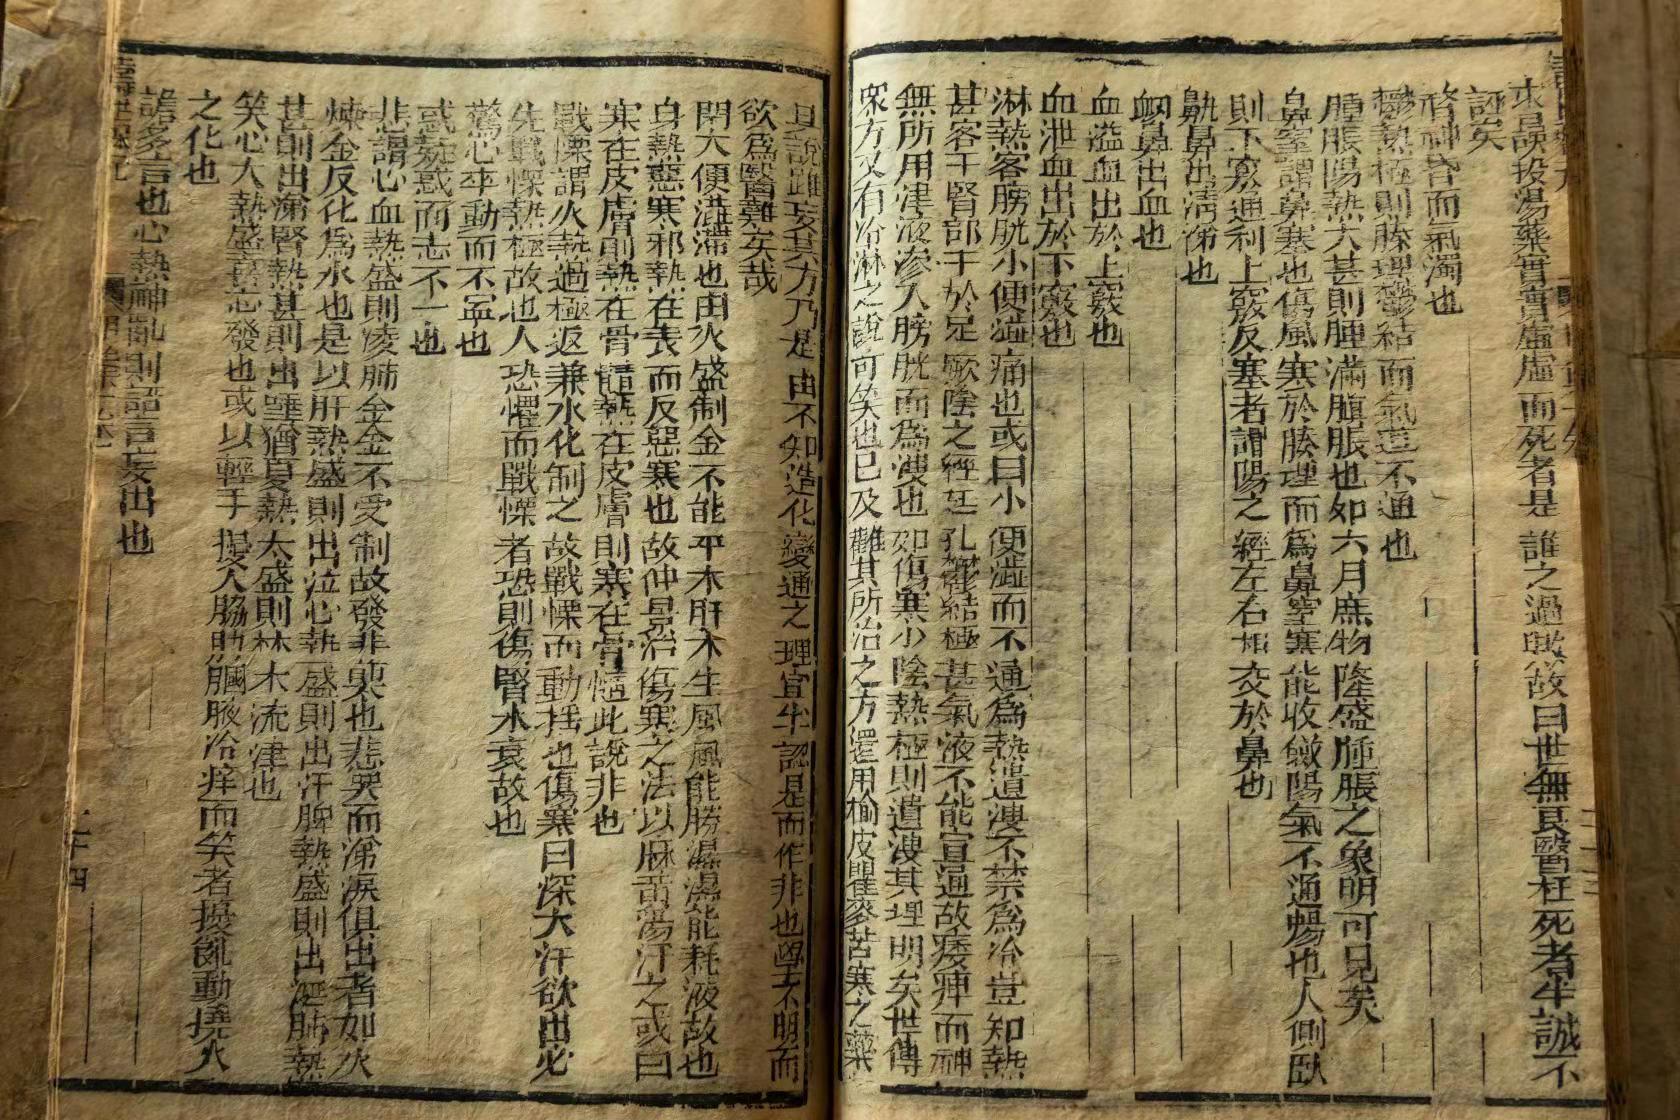 求誤投湯藥實實虛虛而死者是誰之過歟故曰世無良醫枉死者半誠不
誣矣
瞀神昏而氣濁也
鬱熱極則腠理鬱結而氣道不通也
腫脹陽熱大甚則腫滿䐜脹也如六月庶物隆盛腫脹之象明可見矣
鼻窒謂鼻塞也傷風寒於腠理而為鼻窒寒能收斂陽氣不通暢也人側臥
則下竅通利上竅反塞者謂陽之經左右相交於鼻也
鼽鼻出清涕也
衂鼻出血也
血溢血出於上竅也
血泄血出於下竅也
淋熱客膀胱小便澁痛也或曰小便澁而不通為熱遺溲不禁為冷豈知熱
甚客于腎部干於足厥陰之經廷孔鬱結極甚氣液不能宣通故痿痺而神
無所用津液滲入膀胱而為溲也如傷寒少陰熱極則遺溲其理明矣世傳
眾方又有冷淋之說可笑也已及觀其所治之方還用榆皮瞿麥苦寒之藥
其說雖妄其方乃是由不知造化變通之理宜乎認是而作非也學王不明而
欲為醫難矣哉
閉大便澁滯也由火盛制金不能平木肝木生風風能勝濕濕能耗液故也
身熱惡寒邪熱在表而反惡寒也故仲景治傷寒之法以麻黃湯汗之或曰
寒在皮膚則熱在骨髓熱在皮膚則寒在骨髓此說非也
戰慄謂火熱過極返兼水化制之故戰慄而動揺也傷寒曰深大汗欲出必
先戰慄熱極故也人恐懼而戰慄者恐則傷腎水衰故也
驚心卒動而不寧也
惑疑惑而志不一也
悲謂心血熱盛則凌肺金金不受制故發悲哭也悲哭而涕淚俱出者如火
煉金反化為水也是以肝熱盛則出泣心熱盛則出汗脾熱盛則出涎肺熱
甚則出涕腎熱甚則出唾猶夏熱太盛則林木流津也
笑心大熱盛喜志發也或以輕手擾人脇肋胭腋冷痒而笑者擾亂動撓火
之化也
譫多言也心熱神亂則語言妄出也
二十四